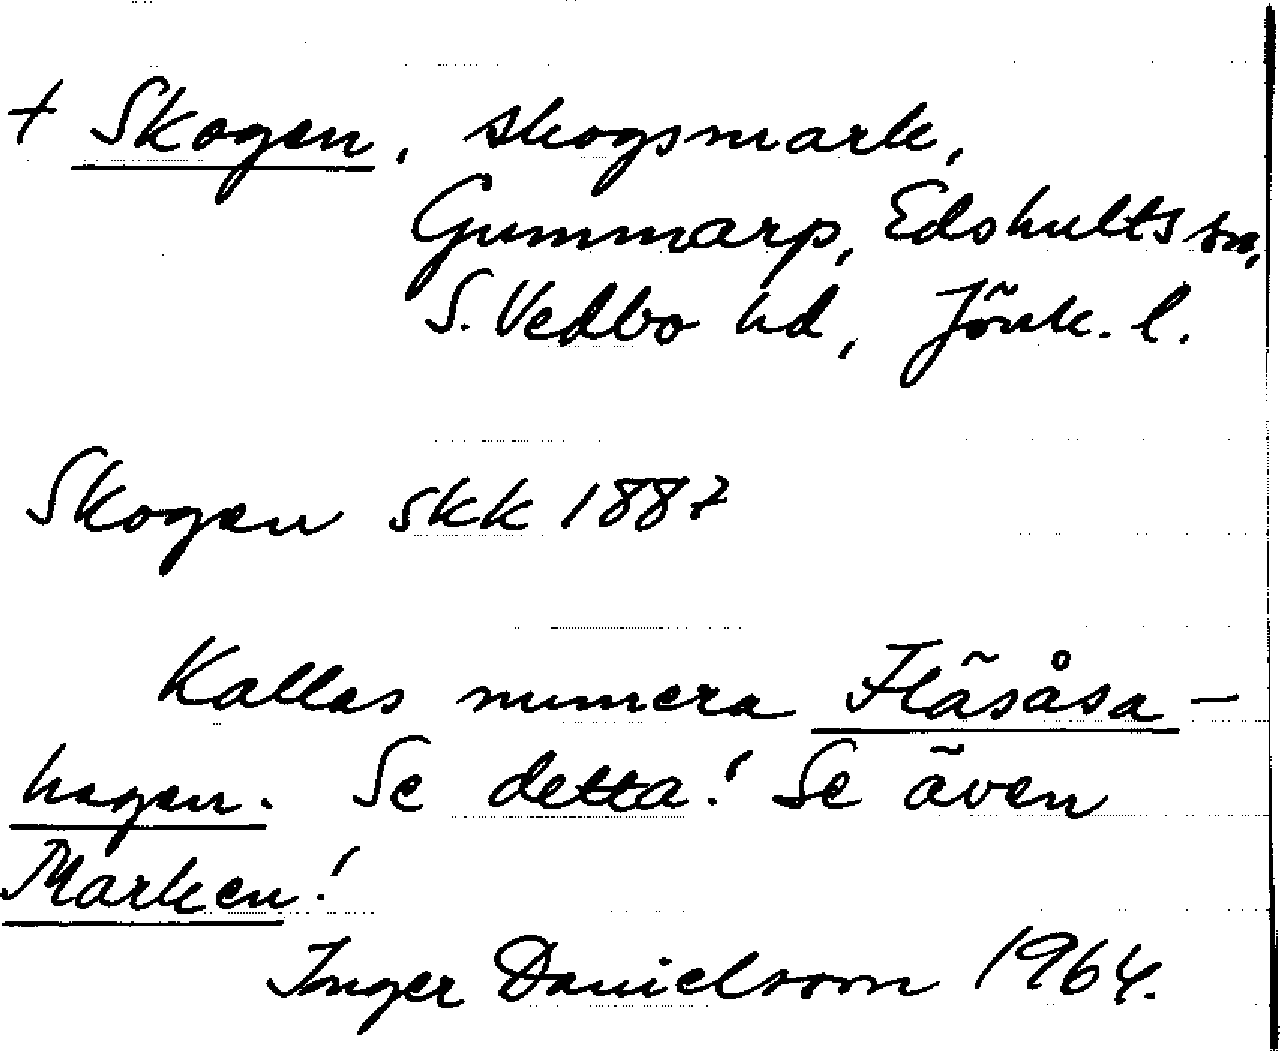 + Skogen, skogsmark,
Gummarp, Edshults sn,
S. Vedbo hd, Jönk. l.
Skogen skk 1887
Kallas numera Fläsåsa-
hagen. Se detta! Se även
Marken!
Inger Danielsson 1964.